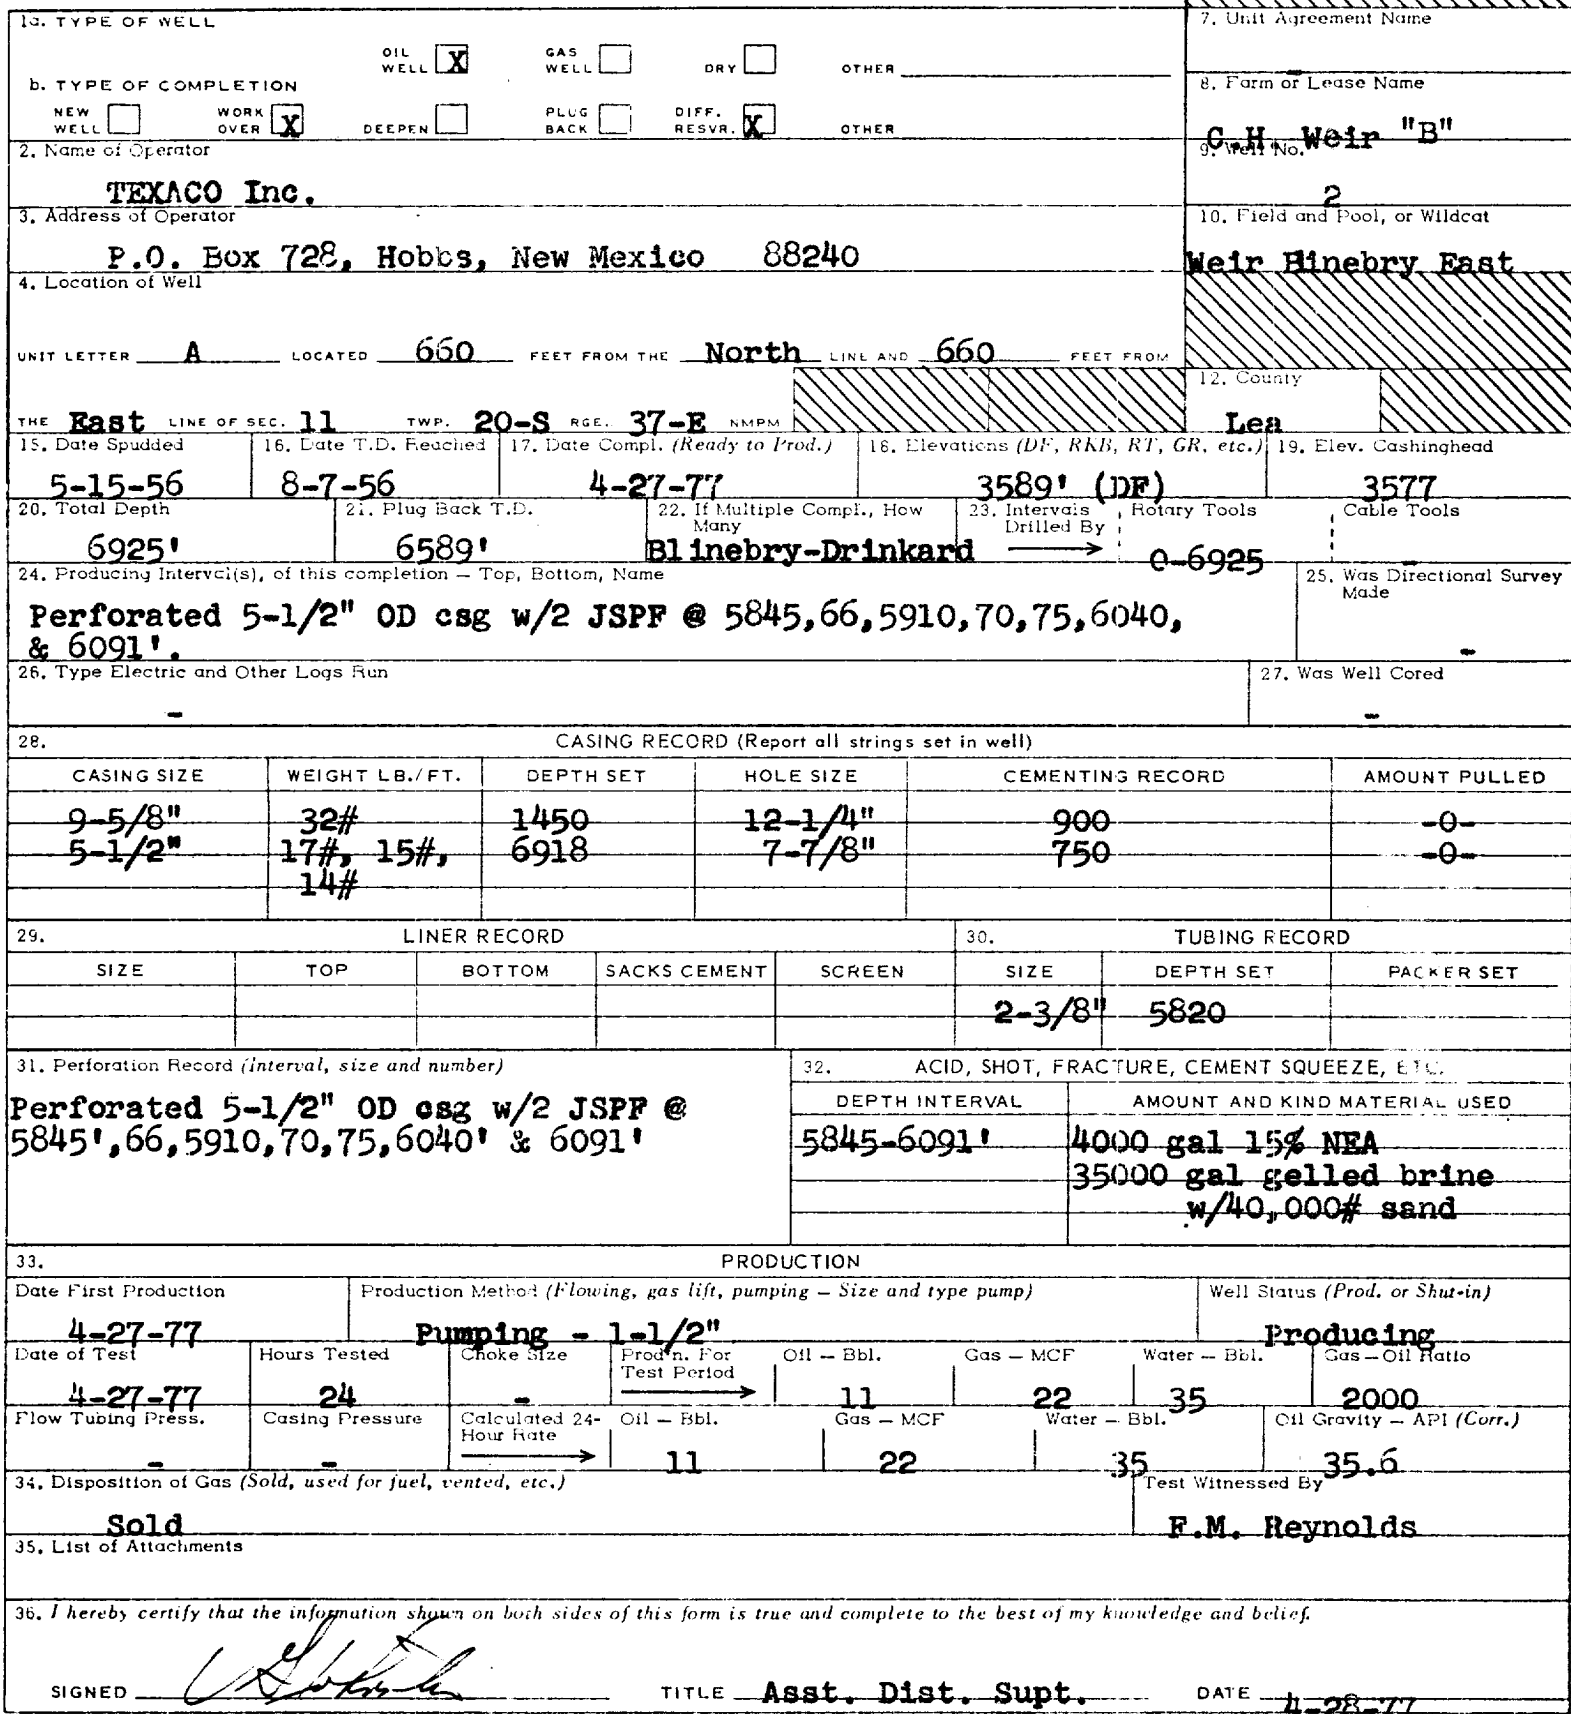 1a. TYPE OF WELL
OIL WELL X GAS WELL DRY OTHER
7. Unit Agreement Name
-
b. TYPE OF COMPLETION
NEW WELL WORK OVER X DEEPEN PLUG BACK DIFF. RESVR. X OTHER
8. Farm or Lease Name
C.H. Weir "B"
2. Name of Operator
TEXACO Inc.
9. Well No.
2
3. Address of Operator
P.O. Box 728, Hobbs, New Mexico 88240
10. Field and Pool, or Wildcat
Weir Blinebry East
4. Location of Well
UNIT LETTER A LOCATED 660 FEET FROM THE North LINE AND 660 FEET FROM
THE East LINE OF SEC. 11 TWP. 20-S RGE. 37-E NMPM
12. County
Lea
15. Date Spudded 16. Date T.D. Reached 17. Date Compl. (Ready to Prod.) 18. Elevations (DF, RKB, RT, GR, etc.) 19. Elev. Cashinghead
5-15-56 8-7-56 4-27-77 3589' (DF) 3577
20. Total Depth 21. Plug Back T.D. 22. If Multiple Compl., How Many 23. Intervals Drilled By Rotary Tools Cable Tools
6925' 6589' Blinebry-Drinkard 0-6925 -
24. Producing Interval(s), of this completion — Top, Bottom, Name
Perforated 5-1/2" OD csg w/2 JSPF @ 5845,66,5910,70,75,6040,
& 6091'.
25. Was Directional Survey Made
-
26. Type Electric and Other Logs Run
-
27. Was Well Cored
-
28. CASING RECORD (Report all strings set in well)
CASING SIZE WEIGHT LB./FT. DEPTH SET HOLE SIZE CEMENTING RECORD AMOUNT PULLED
9-5/8" 32# 1450 12-1/4" 900 -0-
5-1/2" 17#, 15#, 6918 7-7/8" 750 -0-
14#
29. LINER RECORD 30. TUBING RECORD
SIZE TOP BOTTOM SACKS CEMENT SCREEN SIZE DEPTH SET PACKER SET
2-3/8" 5820
31. Perforation Record (Interval, size and number)
Perforated 5-1/2" OD csg w/2 JSPF @
5845',66,5910,70,75,6040' & 6091'
32. ACID, SHOT, FRACTURE, CEMENT SQUEEZE, ETC.
DEPTH INTERVAL AMOUNT AND KIND MATERIAL USED
5845-6091' 4000 gal 15% NEA
35000 gal gelled brine
w/40,000# sand
33. PRODUCTION
Date First Production Production Method (Flowing, gas lift, pumping — Size and type pump) Well Status (Prod. or Shut-in)
4-27-77 Pumping - 1-1/2" Producing
Date of Test Hours Tested Choke Size Prod'n. For Test Period Oil — Bbl. Gas — MCF Water — Bbl. Gas—Oil Ratio
4-27-77 24 - 11 22 35 2000
Flow Tubing Press. Casing Pressure Calculated 24-Hour Rate Oil — Bbl. Gas — MCF Water — Bbl. Oil Gravity — API (Corr.)
- - 11 22 35 35.6
34. Disposition of Gas (Sold, used for fuel, vented, etc.) Test Witnessed By
Sold F.M. Reynolds
35. List of Attachments
36. I hereby certify that the information shown on both sides of this form is true and complete to the best of my knowledge and belief.
SIGNED TITLE Asst. Dist. Supt. DATE 4-28-77